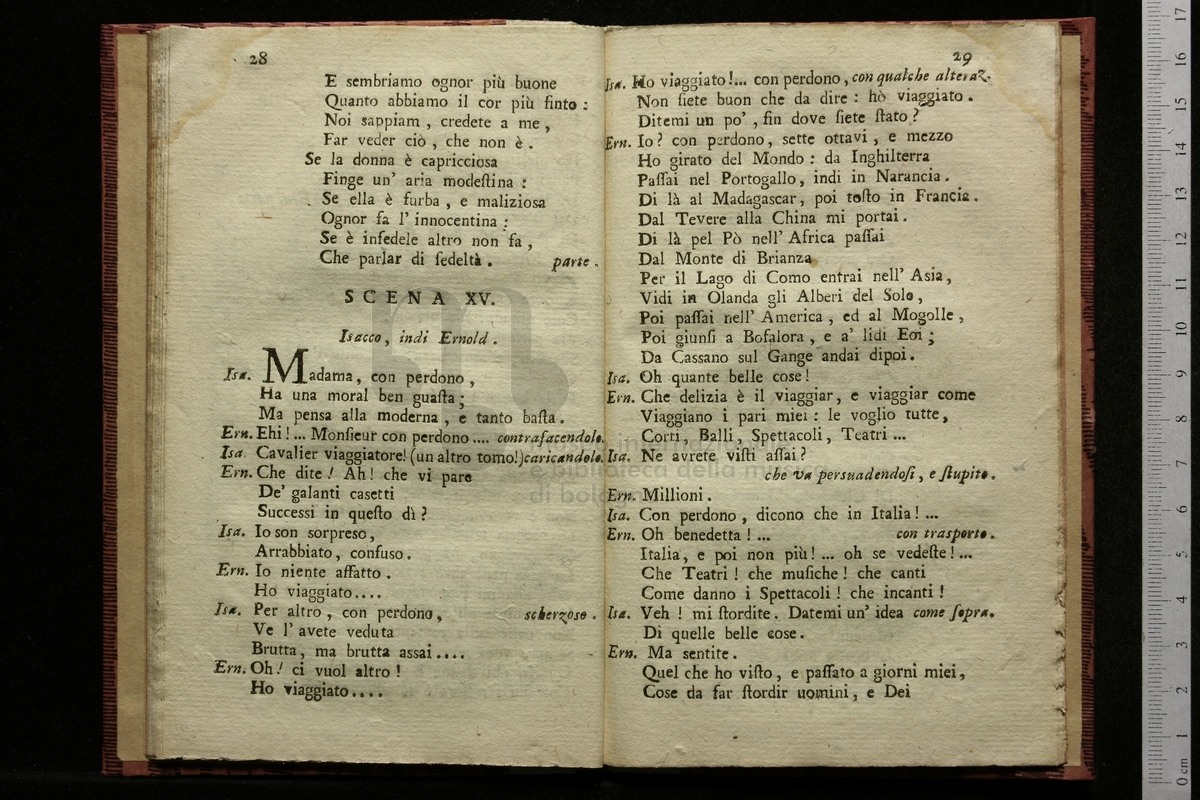 28
E sembriamo ognor più buone
Quanto abbiamo il cor più finto :
Noi sappiam , credete a me ,
Far veder ciò , che non è .
Se la donna è capricciosa
Finge un' aria modeſtina :
Se ella è furba , e maliziosa
Ognor fa l' innocentina :
Se è infedele altro non fa ,
Che parlar di fedeltà . parte .
SCENA XV.
Isacco , indi Ernold .
Isa. Madama, con perdono ,
Ha una moral ben guaſta ;
Ma pensa alla moderna , e tanto baſta .
Ern. Ehi ! ... Monſieur con perdono .... contrafacendolo.
Isa. Cavalier viaggiatore! (un altro tomo!) caricandolo.
Ern. Che dite ! Ah ! che vi pare
De' galanti casetti
Successi in queſto dì ?
Isa. Io son sorpreso,
Arrabbiato , confuso .
Ern. Io niente affatto .
Ho viaggiato....
Isa. Per altro , con perdono, scherzoso .
Ve l' avete veduta
Brutta, ma brutta assai ....
Ern. Oh! ci vuol altro !
Ho viaggiato....
29
Isa. Ho viaggiato !... con perdono , con qualche alteraz.
Non ſiete buon che da dire : hò viaggiato .
Ditemi un po' , fin dove ſiete ſtato ?
Ern. Io ? con perdono, sette ottavi , e mezzo
Ho girato del Mondo : da Inghilterra
Paſſai nel Portogallo, indi in Narancia .
Di là al Madagascar, poi toſto in Francia .
Dal Tevere alla China mi portai .
Di là pel Pò nell' Africa paſſai
Dal Monte di Brianza
Per il Lago di Como entrai nell' Asia,
Vidi in Olanda gli Alberi del Sole,
Poi paſſai nell' America , ed al Mogolle ,
Poi giunſi a Bofalora , e a' lidi Eoi ;
Da Cassano sul Gange andai dipoi .
Isa. Oh quante belle cose !
Ern. Che delizia è il viaggiar, e viaggiar come
Viaggiano i pari miei : le voglio tutte,
Corti, Balli, Spettacoli, Teatri ...
Isa. Ne avrete viſti aſſai ?
che va persuadendoſi , e ſtupito .
Ern. Millioni .
Isa. Con perdono , dicono che in Italia ! ...
Ern. Oh benedetta ! ... con trasporto .
Italia, e poi non più ! ... oh se vedeſte ! ...
Che Teatri ! che muſiche ! che canti
Come danno i Spettacoli ! che incanti !
Isa. Veh ! mi ſtordite . Datemi un' idea come sopra.
Di quelle belle cose .
Ern. Ma sentite .
Quel che ho viſto , e paſſato a giorni miei ,
Cose da far ſtordir uomini, e Dei
0 cm 1 2 3 4 5 6 7 8 9 10 11 12 13 14 15 16 17